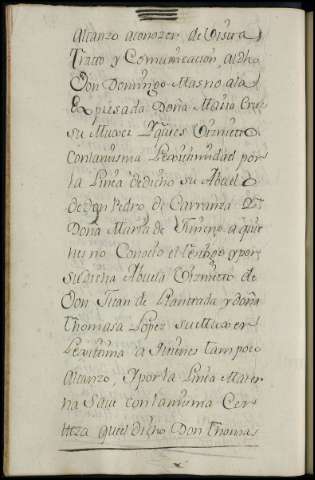 alcanzo aconozer de Visita
Tracto y Comunicacion, aldho
Don Domingo Masno ala
Expresada Doña Maria Cruz
su Muxer Y quees Visnieto
Conlamisma Lexitimidad por
la Linea dedicho su Abuelo
de don Pedro de Carranza Y
Doña Maria de Timeno a quie
nes no Conocio el testigo y por
su dicha Abuela Visnieto de
Don Juan de Llantada y doña
thomasa Lopez su Muxer
Lexitima a quienes tampoco
alcanzo, Y por la Linea Mater
na Save con lamisma Cer
teza quel dicho Don thomas